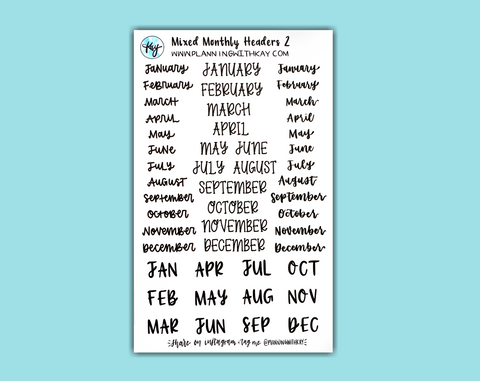 Kay
Mixed Monthly Headers 2
WWW.PLANNINGWITHKAY.COM
JANUARY JANUARY January
FEBRUARY FEBRUARY February
MARCH MARCH March
APRIL APRIL April
MAY MAY JUNE May
JUNE JULY AUGUST June
JULY SEPTEMBER July
AUGUST OCTOBER August
SEPTEMBER NOVEMBER September
OCTOBER DECEMBER October
NOVEMBER November
DECEMBER December
JAN APR JUL OCT
FEB MAY AUG NOV
MAR JUN SEP DEC
share on instagram + tag me @PLANNINGWITHKAY